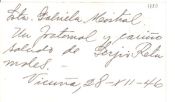 Srta. Gabriela Mistral
Un fraternal y cariñoso
saludo de Sergio
morales.-
Vicuña, 28-XII-46